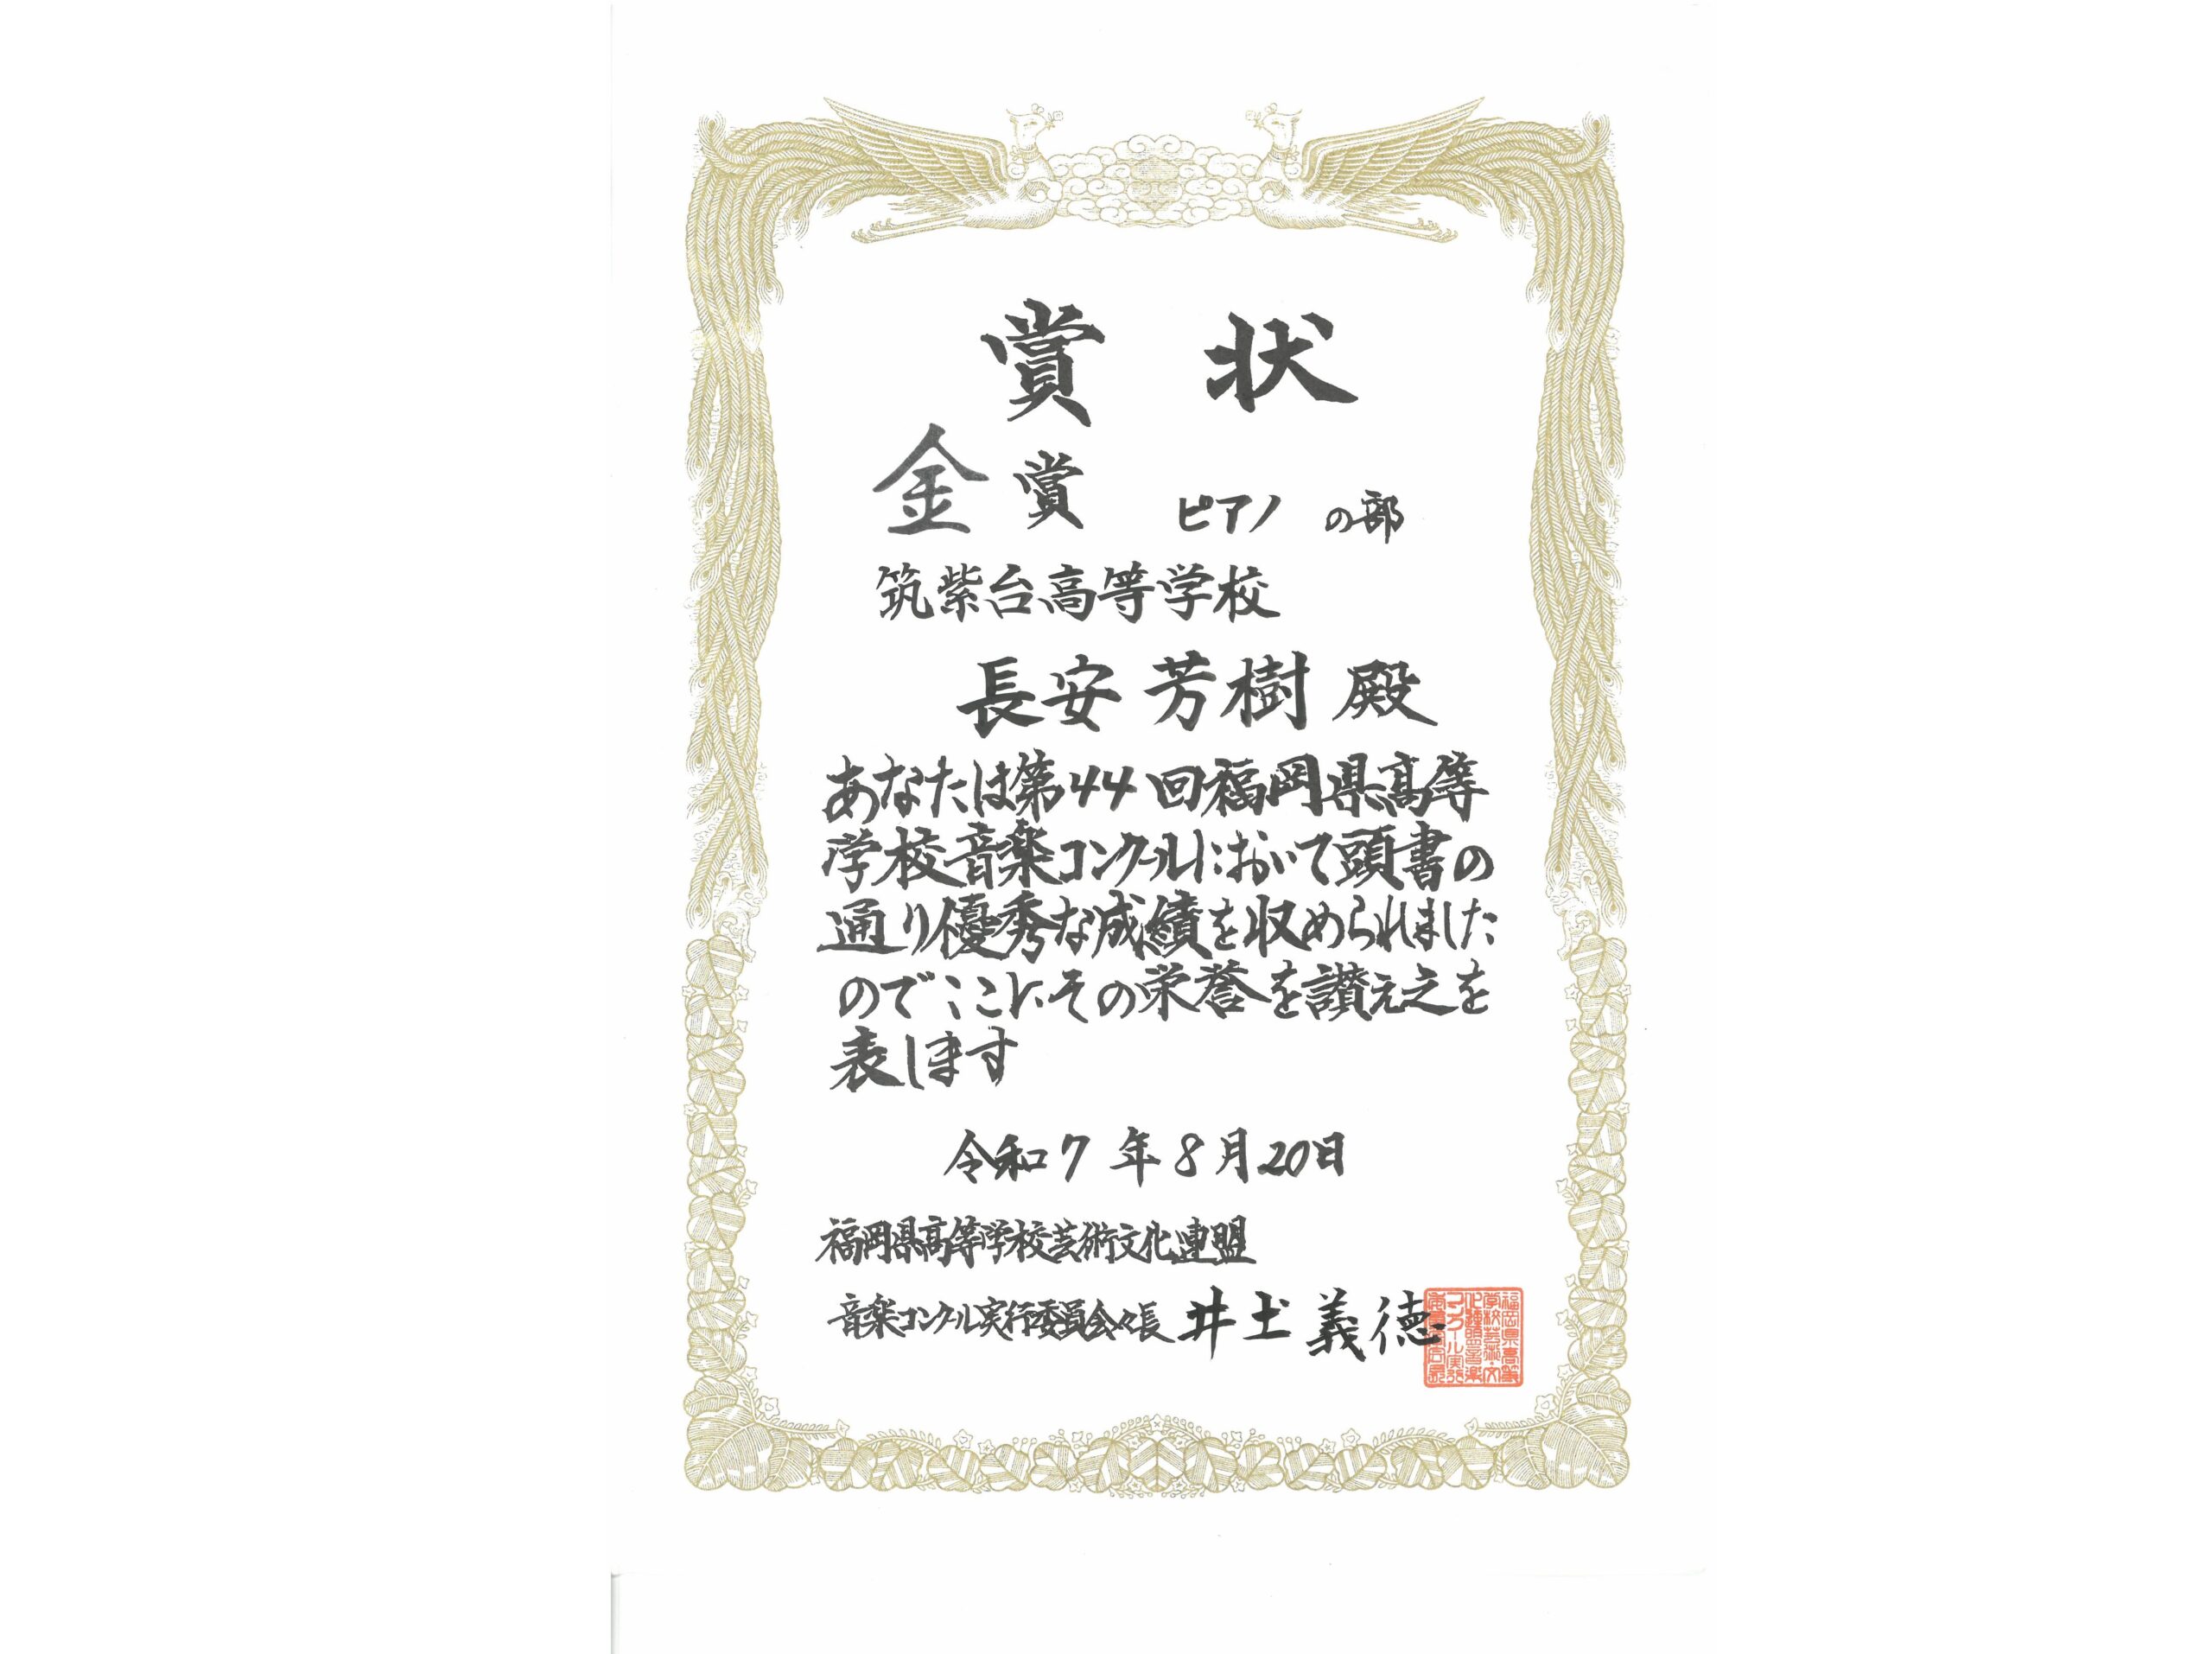 賞状
金賞 ピアノ の部
筑紫台高等学校
長安 芳樹 殿
あなたは第44回福岡県高等
学校音楽コンクールにおいて頭書の
通り優秀な成績を収められました
のでここにその栄誉を讃え之を
表します
令和7年8月20日
福岡県高等学校芸術文化連盟
音楽コンクール実行委員会々長 井土 義徳